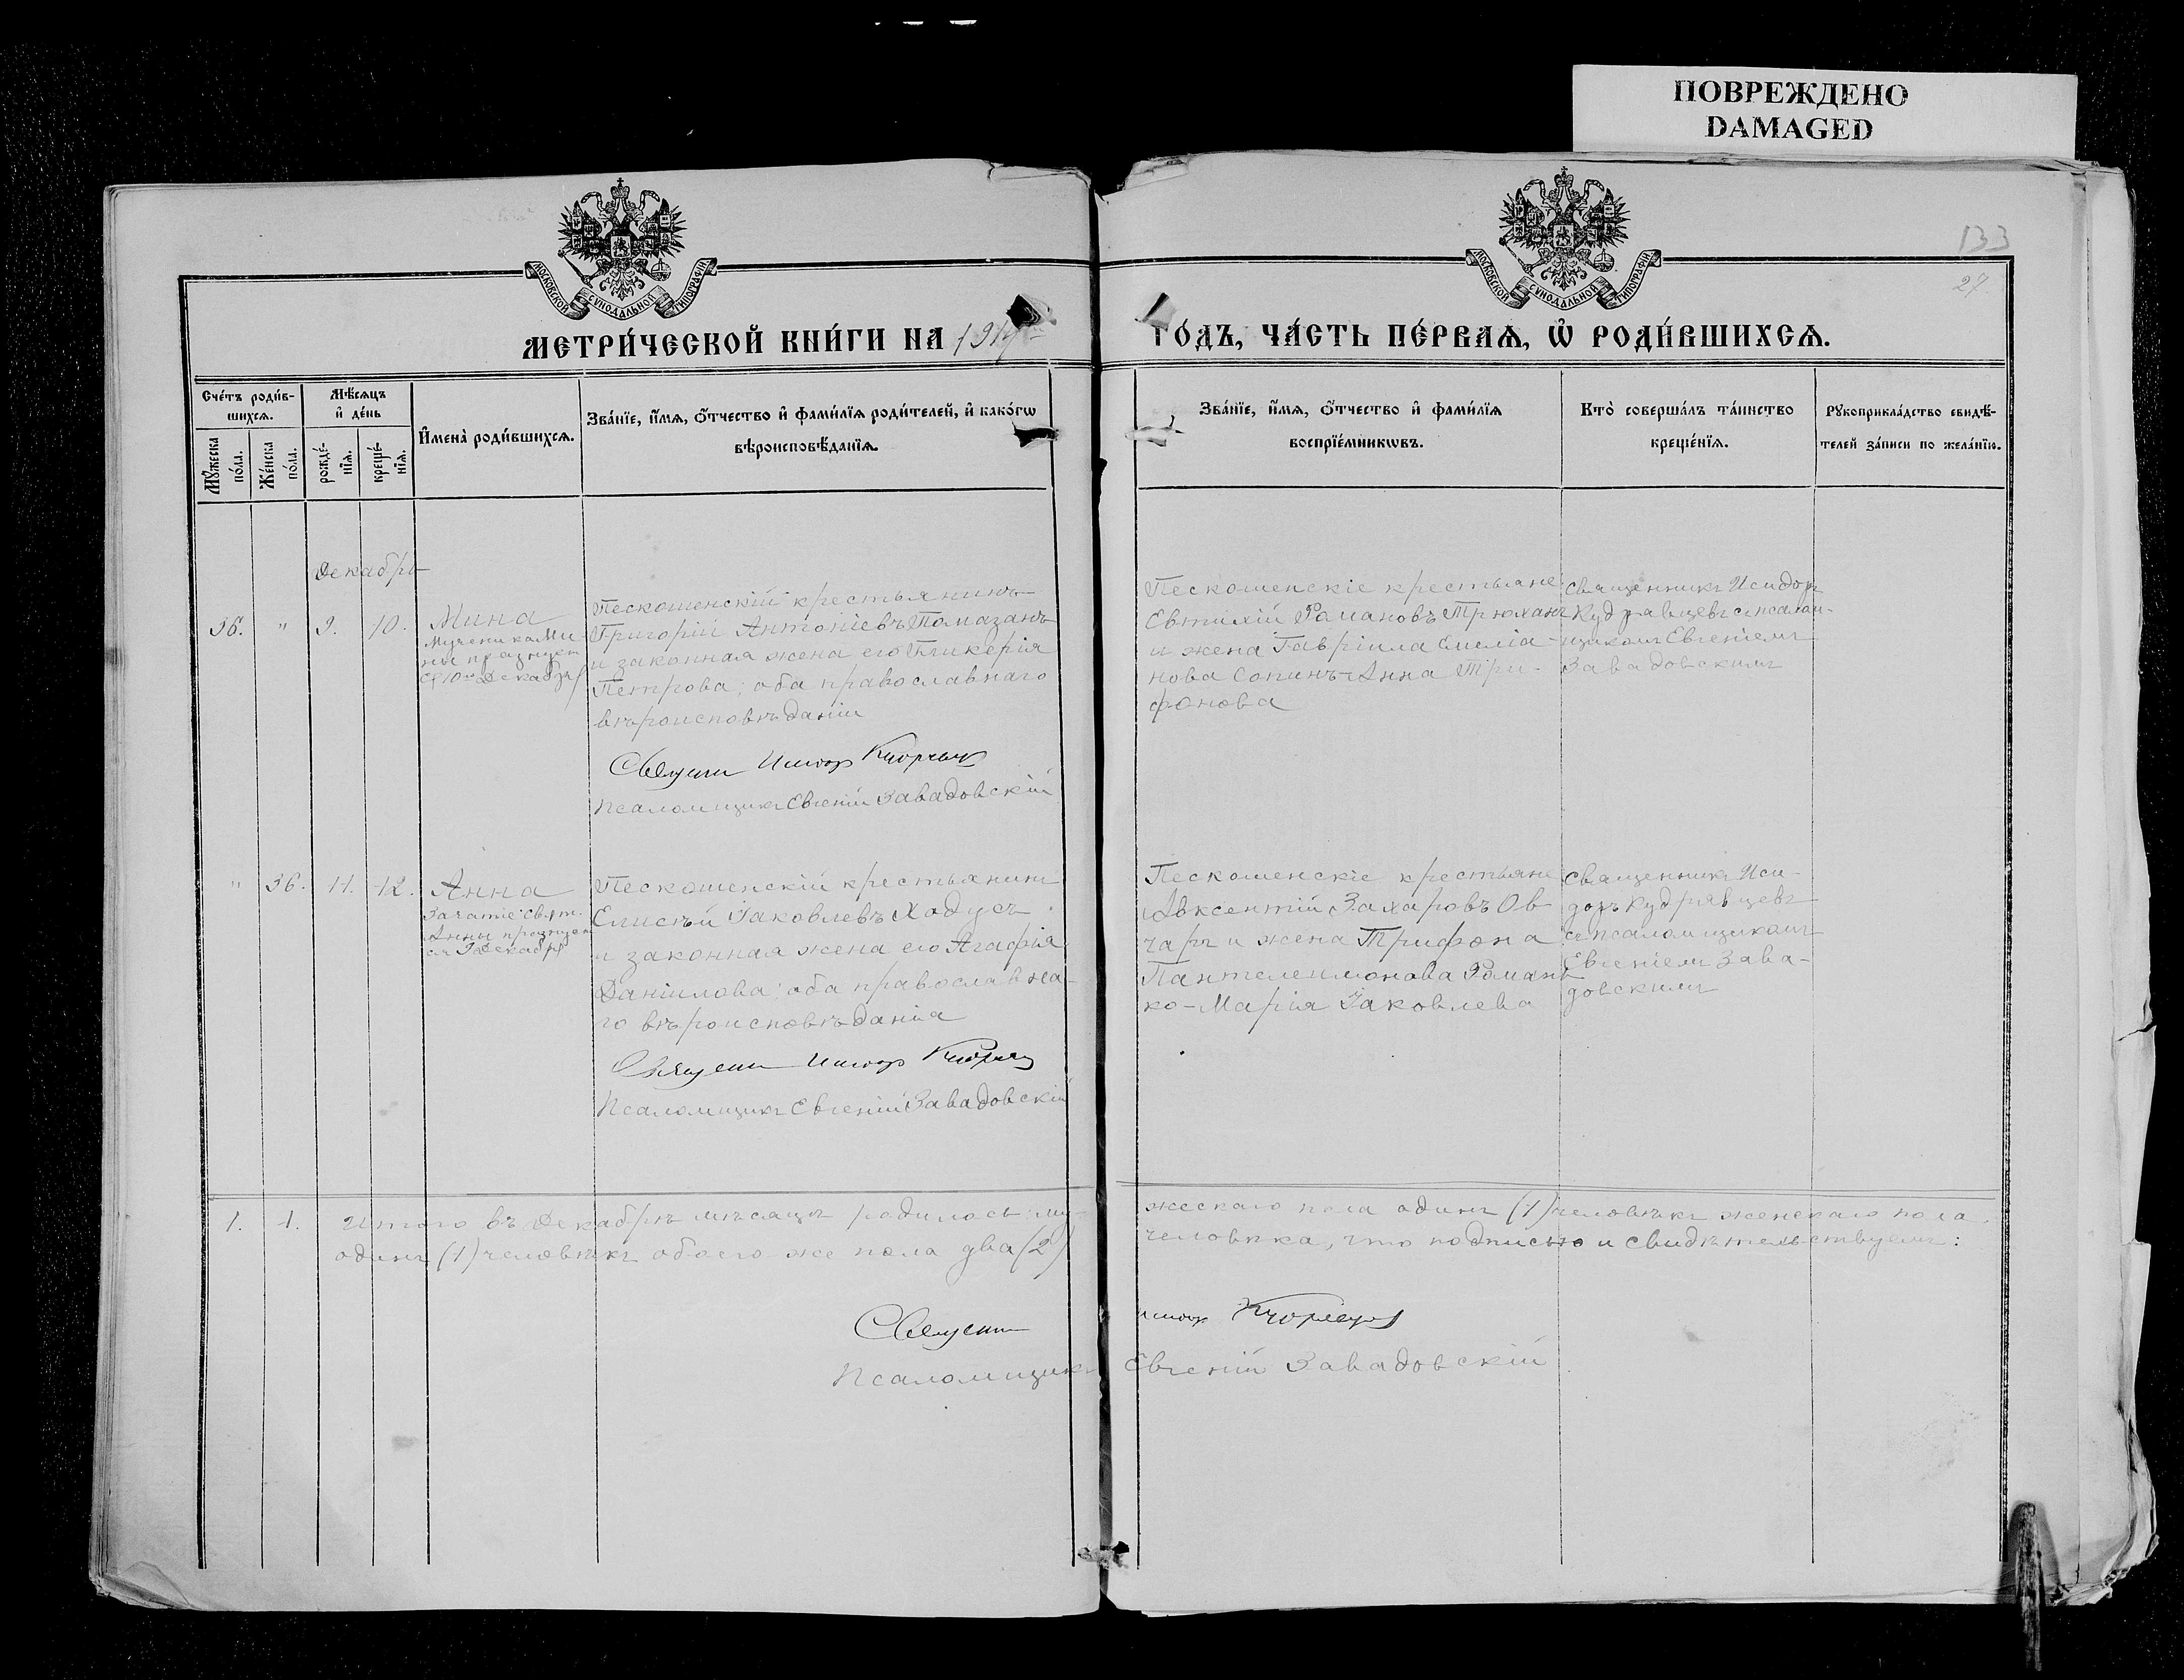 ПОВРЕЖДЕНО
DAMAGED
133
27
МОСКОВСКОЙ СѴНОДАЛЬНОЙ ТИПОГРАФІИ
МОСКОВСКОЙ СѴНОДАЛЬНОЙ ТИПОГРАФІИ
МЕТРИ́ЧЕСКОЙ КНИ́ГИ НА
ГО́ДЪ, ЧА́СТЬ ПЕ́РВАѦ, Ѡ҆ РОДИ́ВШИХСѦ.
Сче́тъ роди́в-
шихсѧ.
Мꙋ́жеска
по́ла.
Же́нска
по́ла.
Мѣ́сѧцъ
и҆ де́нь
рожде́-
нїѧ.
креще́-
нїѧ.
И҆мена̀ роди́вшихсѧ.
Зва́нїе, и҆́мѧ, ѻ҆́тчество и҆ фами́лїѧ роди́телей, и҆ како́гѡ
вѣроисповѣ́данїѧ.
Зва́нїе, и҆́мѧ, ѻ҆́тчество и҆ фами́лїѧ
воспрїе́мникѡвъ.
Кто̀ соверша́лъ та́инство
креще́нїѧ.
Рꙋкоприкла́дство свидѣ́-
телей за́писи по жела́нїю.
Декабрь
36. " 9. 10.
Мина
мученика Ми
ны празнует
ся 10го Декабря
Пескошенскій крестьянинъ
Григорій Антоніевъ Помазанъ
и законная жена его Гликерія
Петрова; оба православнаго
вѣроисповѣданія
Псаломщикъ Евгеній Завадовскій
Пескошенскіе крестьяне
Евтихій Романовъ Трюханъ
и жена Гавріила Емеліа-
нова Сопинъ-Анна Три-
фонова
Священникъ Исидоръ
Кудрявцевъ с псалом-
щикомъ Евгеніемъ
Завадовскимъ
" 36. 11. 12.
Анна
Зачатіе Свят.
Анны празнует
ся 9 Декабря
Пескошенскій крестьянинъ
Елисѣй Іаковлевъ Ходусъ
и законная жена его Агафія
Даніилова; оба православна-
го вѣроисповѣданія
Псаломщикъ Евгеній Завадовскій
Пескошенскіе крестьяне
Авксентій Захаровъ Ов
чаръ и жена Трифона
Пантелеимонова Роман
ко-Марія Іаковлева
Священникъ Иси-
доръ Кудрявцевъ
с псаломщикомъ
Евгеніемъ Зава-
довскимъ
1. 1. Итого въ Декабрѣ мѣсяцѣ родилось: му-
жескаго пола одинъ (1) человѣкъ женскаго пола
одинъ (1) человѣкъ обоего же пола два (2)
человѣка, что подписью и свидѣтельствуемъ:
Псаломщикъ Евгеній Завадовскій